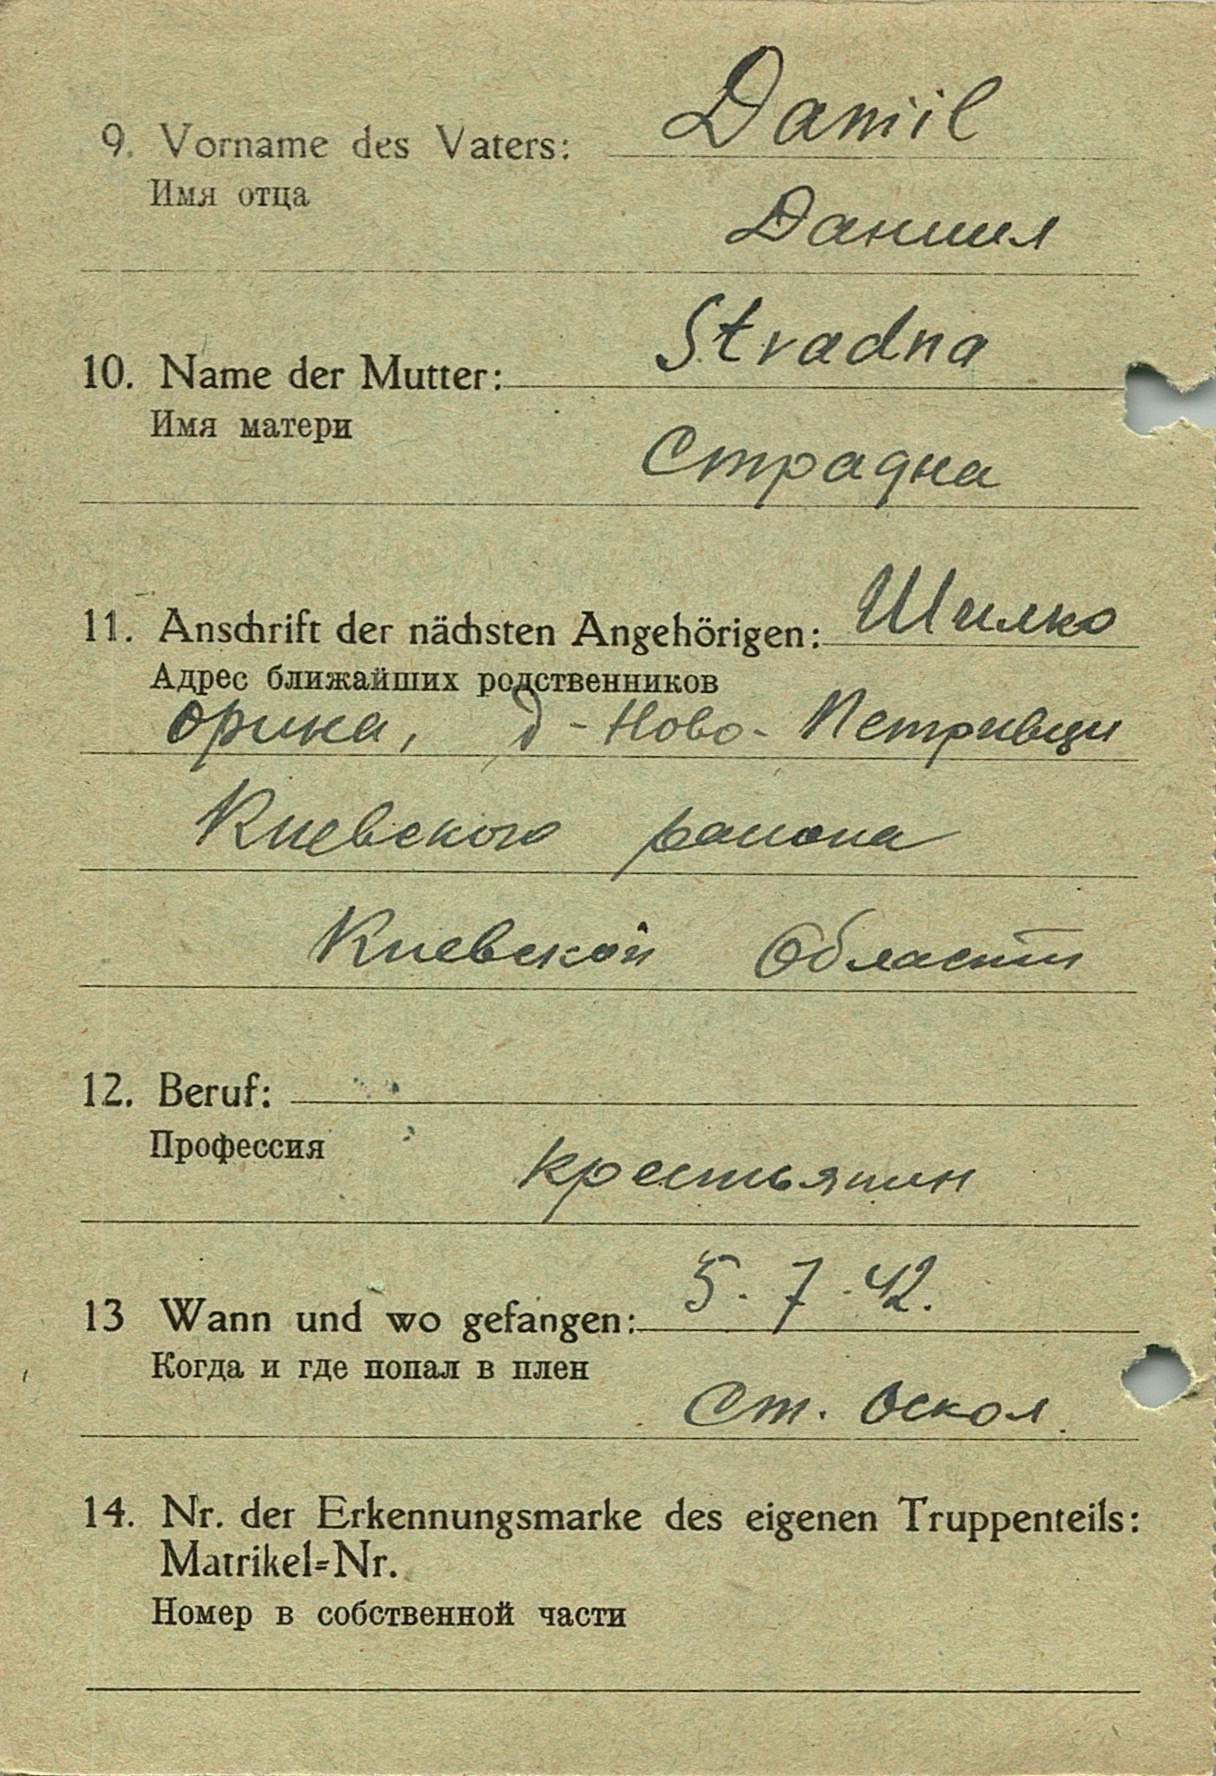 9. Vorname des Vaters: Daniil
Имя отца
Даниил
10. Name der Mutter: Stradna
Имя матери
Страдна
11. Anschrift der nächsten Angehörigen: Шилко
Адрес ближайших родственников
Орина, д-Ново-Петривци
Киевского района
Киевской Области
12. Beruf:
Профессия
крестьянин
13 Wann und wo gefangen: 5.7.42.
Когда и где попал в плен
Ст. Оскол.
14. Nr. der Erkennungsmarke des eigenen Truppenteils:
Matrikel=Nr.
Номер в собственной части